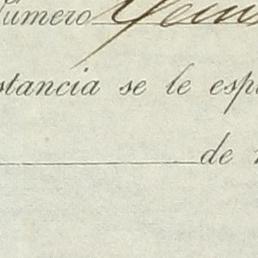 Número
stancia se le esp
de